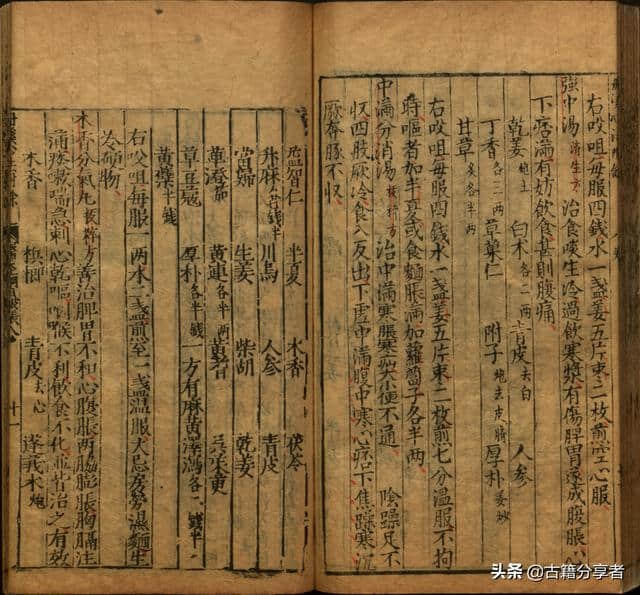 右㕮咀每服四錢水一盞姜五片棗二枚煎空心服
強中湯 濟生方 治食啖生冷過飲寒漿有傷脾胃遂成腹脹心
下痞滿有妨飲食甚則腹痛
乾姜 白木各二兩 青皮去白 人參
丁香 草菓仁 附子炮去皮臍 厚朴姜炒
甘草炙各半兩
右㕮咀每服四錢水一盞姜五片棗二枚煎七分溫服不拘
時嘔者加半夏或食麵脹滿加蘿蔔子各半兩
中滿分消湯 拔粹方 治中滿寒脹寒疝 便不通 陰躁足不
收四肢厥冷食入反出下虛中滿腹中寒心痞下焦躁寒沉
厥奔豚不收
益智仁 半夏 木香 茯苓
升麻 川烏 人參 青皮
當歸 生姜 柴胡 乾姜
蓽澄茄 黃連各半兩 黃耆 吳茱萸
草豆蔻 厚朴各半錢 一方有麻黃澤瀉各一錢半
黃蘗半錢
右㕮咀每服一兩水一盞煎至一盞溫服大忌房勞濕麵生
冷硬物
木香分氣丸 拔粹方 善治脾胃不和心腹脹兩脇膨脹胸膈注
滿痰嗽喘急刺心乾嘔咽喉不利飲食不化並皆治之有效
木香 檳榔 青皮去心 蓬莪术炮
十一
头条 @古籍分享者